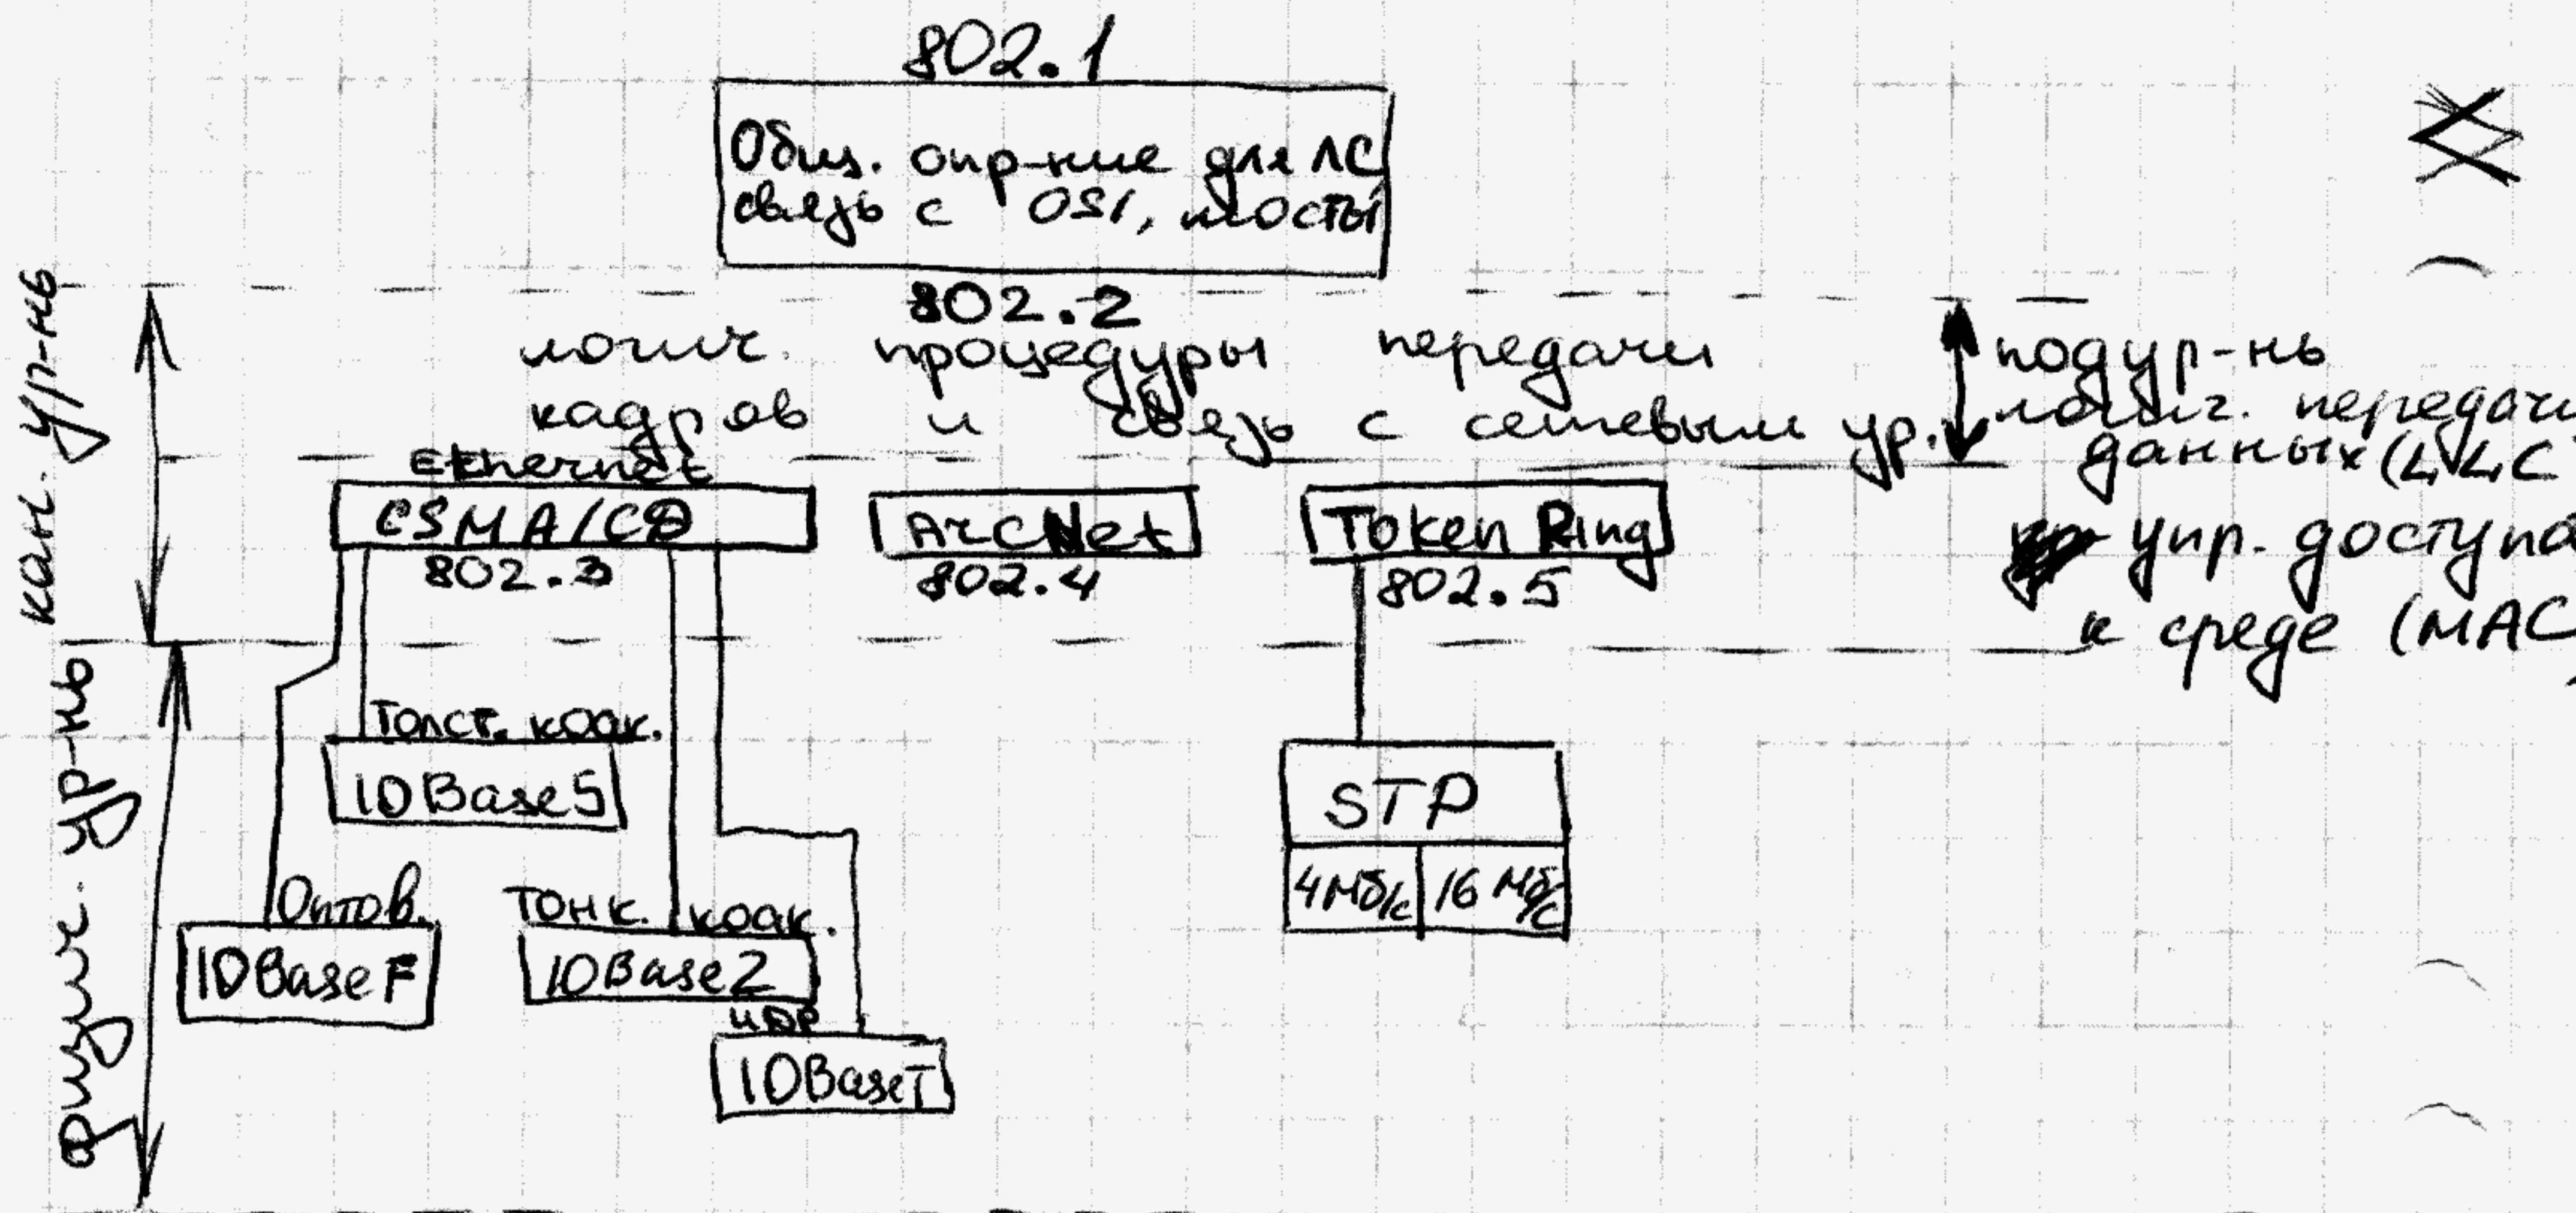 802.1
Общ. опр-ние для ЛС
связь с OSI, мосты
802.2
логич. процедуры передачи
кадров и связь с сетевым ур.
подур-нь
логич. передачи
данных (LLC
упр. доступа
к среде (MAC)
кан. ур-нь
Ethernet
CSMA/CD
802.3
ArcNet
802.4
Token Ring
802.5
физич. ур-нь
Толст. коак.
10Base5
STP
4Мб/с 16 Мб/с
Оптов.
10BaseF
Тонк. коак.
10Base2
10BaseT